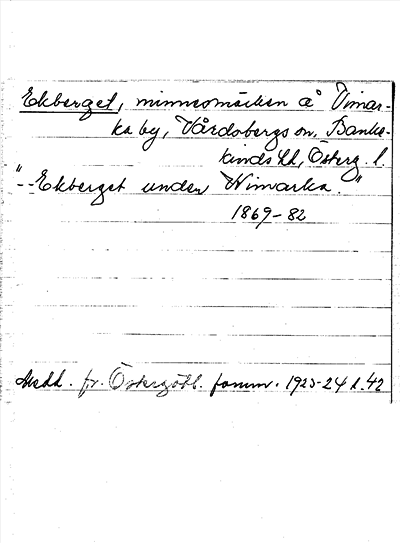 Ekberget, minnesmärken å Vimar-
ka by, Vårdsbergs sn, Banke-
kinds hd, Österg. l.
"-- Ekberget under Wimarka."
1869-82
Medd. fr. Östergötl. fornm. 1923-24 s. 42